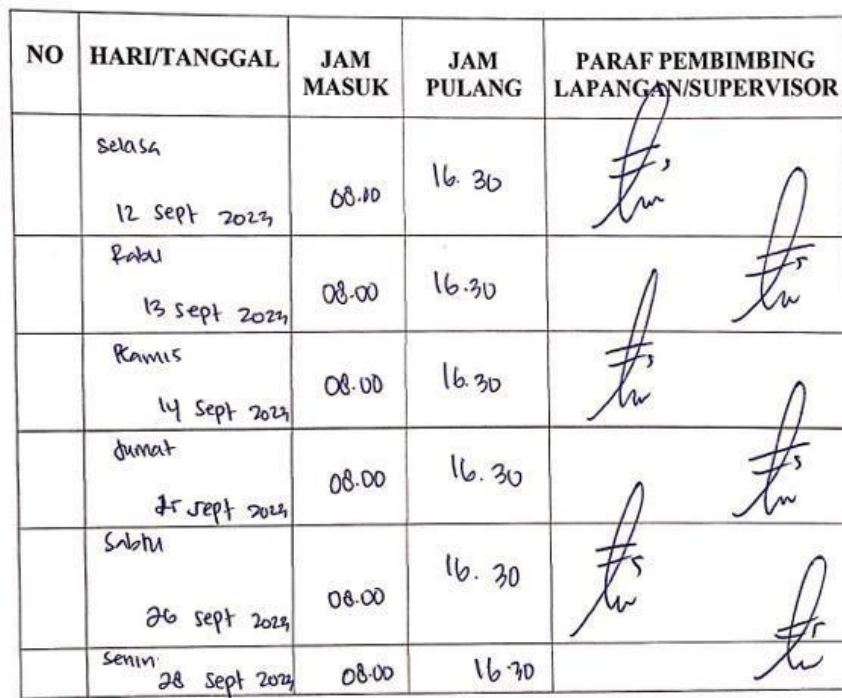 NO HARI/TANGGAL JAM MASUK JAM PULANG PARAF PEMBIMBING LAPANGAN/SUPERVISOR
Selasa
12 Sept 2023 08.00 16.30
Rabu
13 Sept 2023 08.00 16.30
Kamis
14 Sept 2023 08.00 16.30
Jumat
Sept 2023 08.00 16.30
Sabtu
26 Sept 2023 08.00 16.30
Senin
28 Sept 2023 08.00 16.30